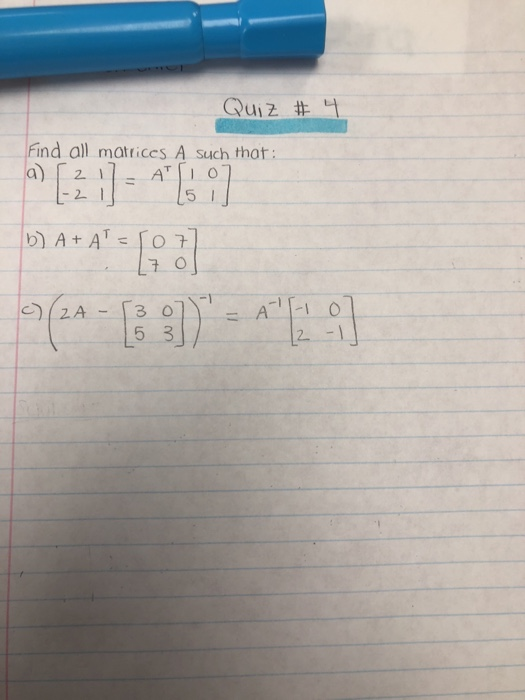 Quiz # 4
Find all matrices A such that:
a) [2 1; -2 1] = Aᵀ [1 0; 5 1]
b) A + Aᵀ = [0 7; 7 0]
c) (2A - [3 0; 5 3])⁻¹ = A⁻¹ [-1 0; 2 -1]